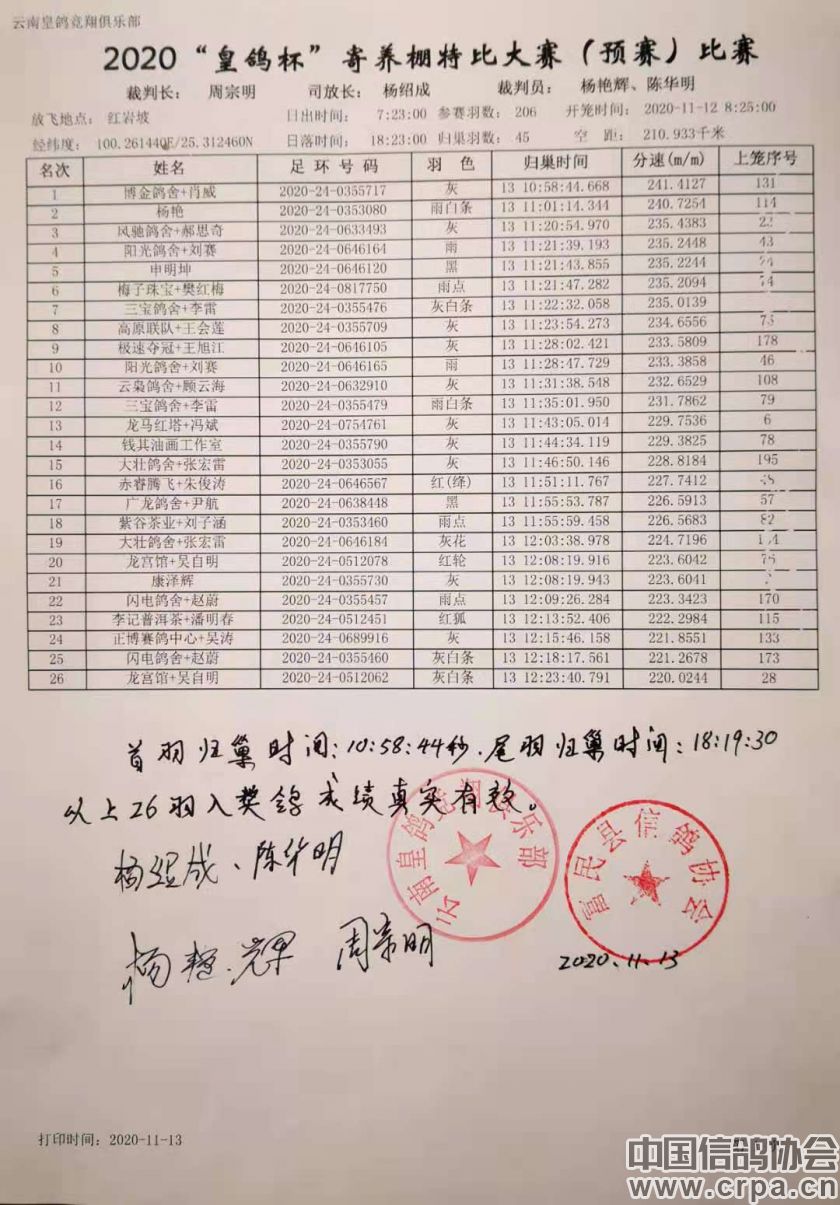 云南皇鸽竞翔俱乐部
2020“皇鸽杯”寄养棚特比大赛（预赛）比赛
裁判长： 周宗明 司放长： 杨绍成 裁判员： 杨艳辉、陈华明
放飞地点： 红岩坡 日出时间： 7:23:00 参赛羽数： 206 开笼时间： 2020-11-12 8:25:00
经纬度： 100.261440E/25.312460N 日落时间： 18:23:00 归巢羽数： 45 空 距： 210.933千米
名次 姓名 足环号码 羽 色 归巢时间 分速(m/m) 上笼序号
1 博金鸽舍+肖威 2020-24-0355717 灰 13 10:58:44.668 241.4127 131
2 杨艳 2020-24-0353080 雨白条 13 11:01:14.344 240.7254 114
3 风驰鸽舍+郝思奇 2020-24-0633493 灰 13 11:20:54.970 235.4383
4 阳光鸽舍+刘赛 2020-24-0646164 雨 13 11:21:39.193 235.2448 43
5 申明坤 2020-24-0646120 黑 13 11:21:43.855 235.2244
6 梅子珠宝+樊红梅 2020-24-0817750 雨点 13 11:21:47.282 235.2094
7 三宝鸽舍+李雷 2020-24-0355476 灰白条 13 11:22:32.058 235.0139
8 高原联队+王会莲 2020-24-0355709 灰 13 11:23:54.273 234.6556
9 极速夺冠+王旭江 2020-24-0646105 灰 13 11:28:02.421 233.5809 178
10 阳光鸽舍+刘赛 2020-24-0646165 雨 13 11:28:47.729 233.3858 46
11 云枭鸽舍+顾云海 2020-24-0632910 灰 13 11:31:38.548 232.6529 108
12 三宝鸽舍+李雷 2020-24-0355479 雨白条 13 11:35:01.950 231.7862 79
13 龙马红塔+冯斌 2020-24-0754761 灰 13 11:43:05.014 229.7536 6
14 钱其油画工作室 2020-24-0355790 灰 13 11:44:34.119 229.3825 78
15 大壮鸽舍+张宏雷 2020-24-0353055 灰 13 11:46:50.146 228.8184 195
16 赤睿腾飞+朱俊涛 2020-24-0646567 红(绛) 13 11:51:11.767 227.7412
17 广龙鸽舍+尹航 2020-24-0638448 黑 13 11:55:53.787 226.5913 57
18 紫谷茶业+刘子涵 2020-24-0353460 雨点 13 11:55:59.458 226.5683 82
19 大壮鸽舍+张宏雷 2020-24-0646184 灰花 13 12:03:38.978 224.7196
20 龙宫馆+吴自明 2020-24-0512078 红轮 13 12:08:19.916 223.6042
21 康泽辉 2020-24-0355730 灰 13 12:08:19.943 223.6041
22 闪电鸽舍+赵蔚 2020-24-0355457 雨点 13 12:09:26.284 223.3423 170
23 李记普洱茶+潘明春 2020-24-0512451 红狐 13 12:13:52.406 222.2984 115
24 正博赛鸽中心+吴涛 2020-24-0689916 灰 13 12:15:46.158 221.8551 133
25 闪电鸽舍+赵蔚 2020-24-0355460 灰白条 13 12:18:17.561 221.2678 173
26 龙宫馆+吴自明 2020-24-0512062 灰白条 13 12:23:40.791 220.0244 28
首羽归巢时间：10:58:44秒.尾羽归巢时间：18:19:30
以上26羽入奖鸽成绩真实有效。
云南皇鸽竞翔俱乐部
富民县信鸽协会
杨绍成、陈华明
杨艳辉 周宗明
2020.11.13
打印时间：2020-11-13
中国信鸽协会
www.crpa.cn